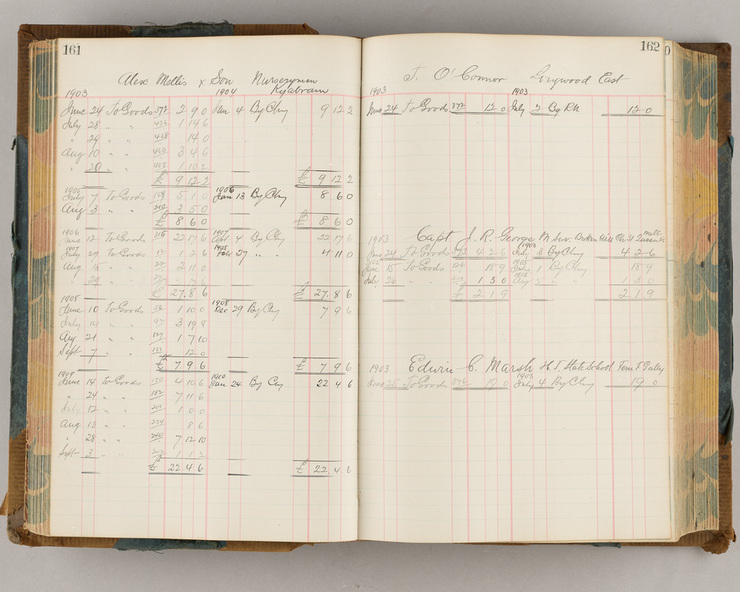 161
Alex Mellis & Son Nurserymen
Kyabram
1903 1904
June 24 To Goods 372 2 9 0 Jan 4 By Chq 9 12 2
July 28 " " 1 14 6
" 29 " " 14 0
Aug 10 " " 3 4 6
" 20 " " 1 10 2
£ 9 12 2 £ 9 12 2
1905 1906
July 7 To Goods 5 1 0 Jan 13 By Chq 8 6 0
Aug 3 " " 3 5 0
£ 8 6 0 £ 8 6 0
1906 1907
June 12 To Goods 22 17 6 Oct 4 By Chq 22 17 6
1907 1908
July 29 To Goods 1 2 6 Feb 27 " " 4 11 0
Aug 15 " " 2 11 0
£ 27 8 6 £ 27 8 6
1908 1908
June 10 To Goods 1 10 0 Dec 29 By Chq 7 9 6
July 14 " " 97 3 19 8
Aug 21 " " 1 7 10
Sept 7 " " 12 0
£ 7 9 6 £ 7 9 6
1909 1910
June 14 To Goods 4 10 6 Jan 24 By Chq 22 4 6
" 24 " " 7 11 6
July 12 " " 1 0 0
Aug 13 " " 8 6
" 28 " " 7 12 10
Sept 3 " " 1 1 2
£ 22 4 6 £ 22 4 6
162
J. O'Connor Lingwood East
1903 1903
June 24 To Goods 372 12 0 July 2 By 12 0
1903 Capt J. R. George
June 24 To Goods 4 2 6 July 8 By Chq 4 2 6
June 15 To Goods 18 9 July 1 By Chq 18 9
July 20 " " 1 3 0 Aug 2 " 1 3 0
£ 2 1 9 2 1 9
1903 Edwin C. Marsh H. T. State School Fern T Gully
June 25 To Goods 372 19 0 July 4 By Chq 19 0